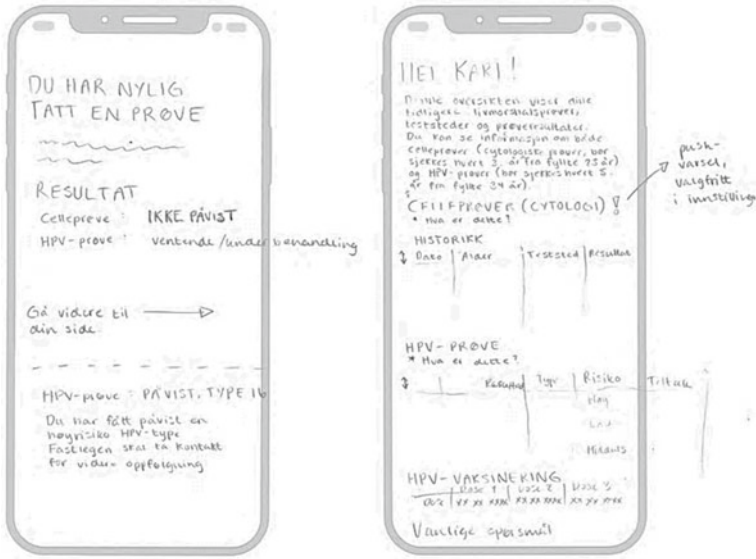 DU HAR NYLIG
TATT EN PRØVE
RESULTAT
Celleprøve : IKKE PÅVIST
HPV-prøve : ventende/under behandling
Gå videre til
din side.
HPV-prøve : PÅVIST, TYPE 16
Du har fått påvist en
høyrisiko HPV-type
Fastlegen skal ta kontakt
for videre oppfølging
HEI KARI!
Denne oversikten viser dine
tidligere livmorhalsprøver,
teststeder og prøveresultater.
Du kan se informasjon om både
celleprøver (cytologiske prøver, bør
sjekkes hvert 3. år fra fylte 25 år)
og HPV-prøver (bør sjekkes hvert 5.
år fra fylte 34 år).
CELLEPRØVER (CYTOLOGI) !
* Hva er dette?
push-
varsel,
valgfritt
i innstillinge
HISTORIKK
Dato Alder Teststed Resultat
HPV-PRØVE
* Hva er dette?
Resultat Type Risiko Tiltak
Høy
HPV-VAKSINERING
Dose 1 Dose 2 Dose 3
xx xx xxxx xx xx xxxx xx xx xxxx
Vanlige spørsmål